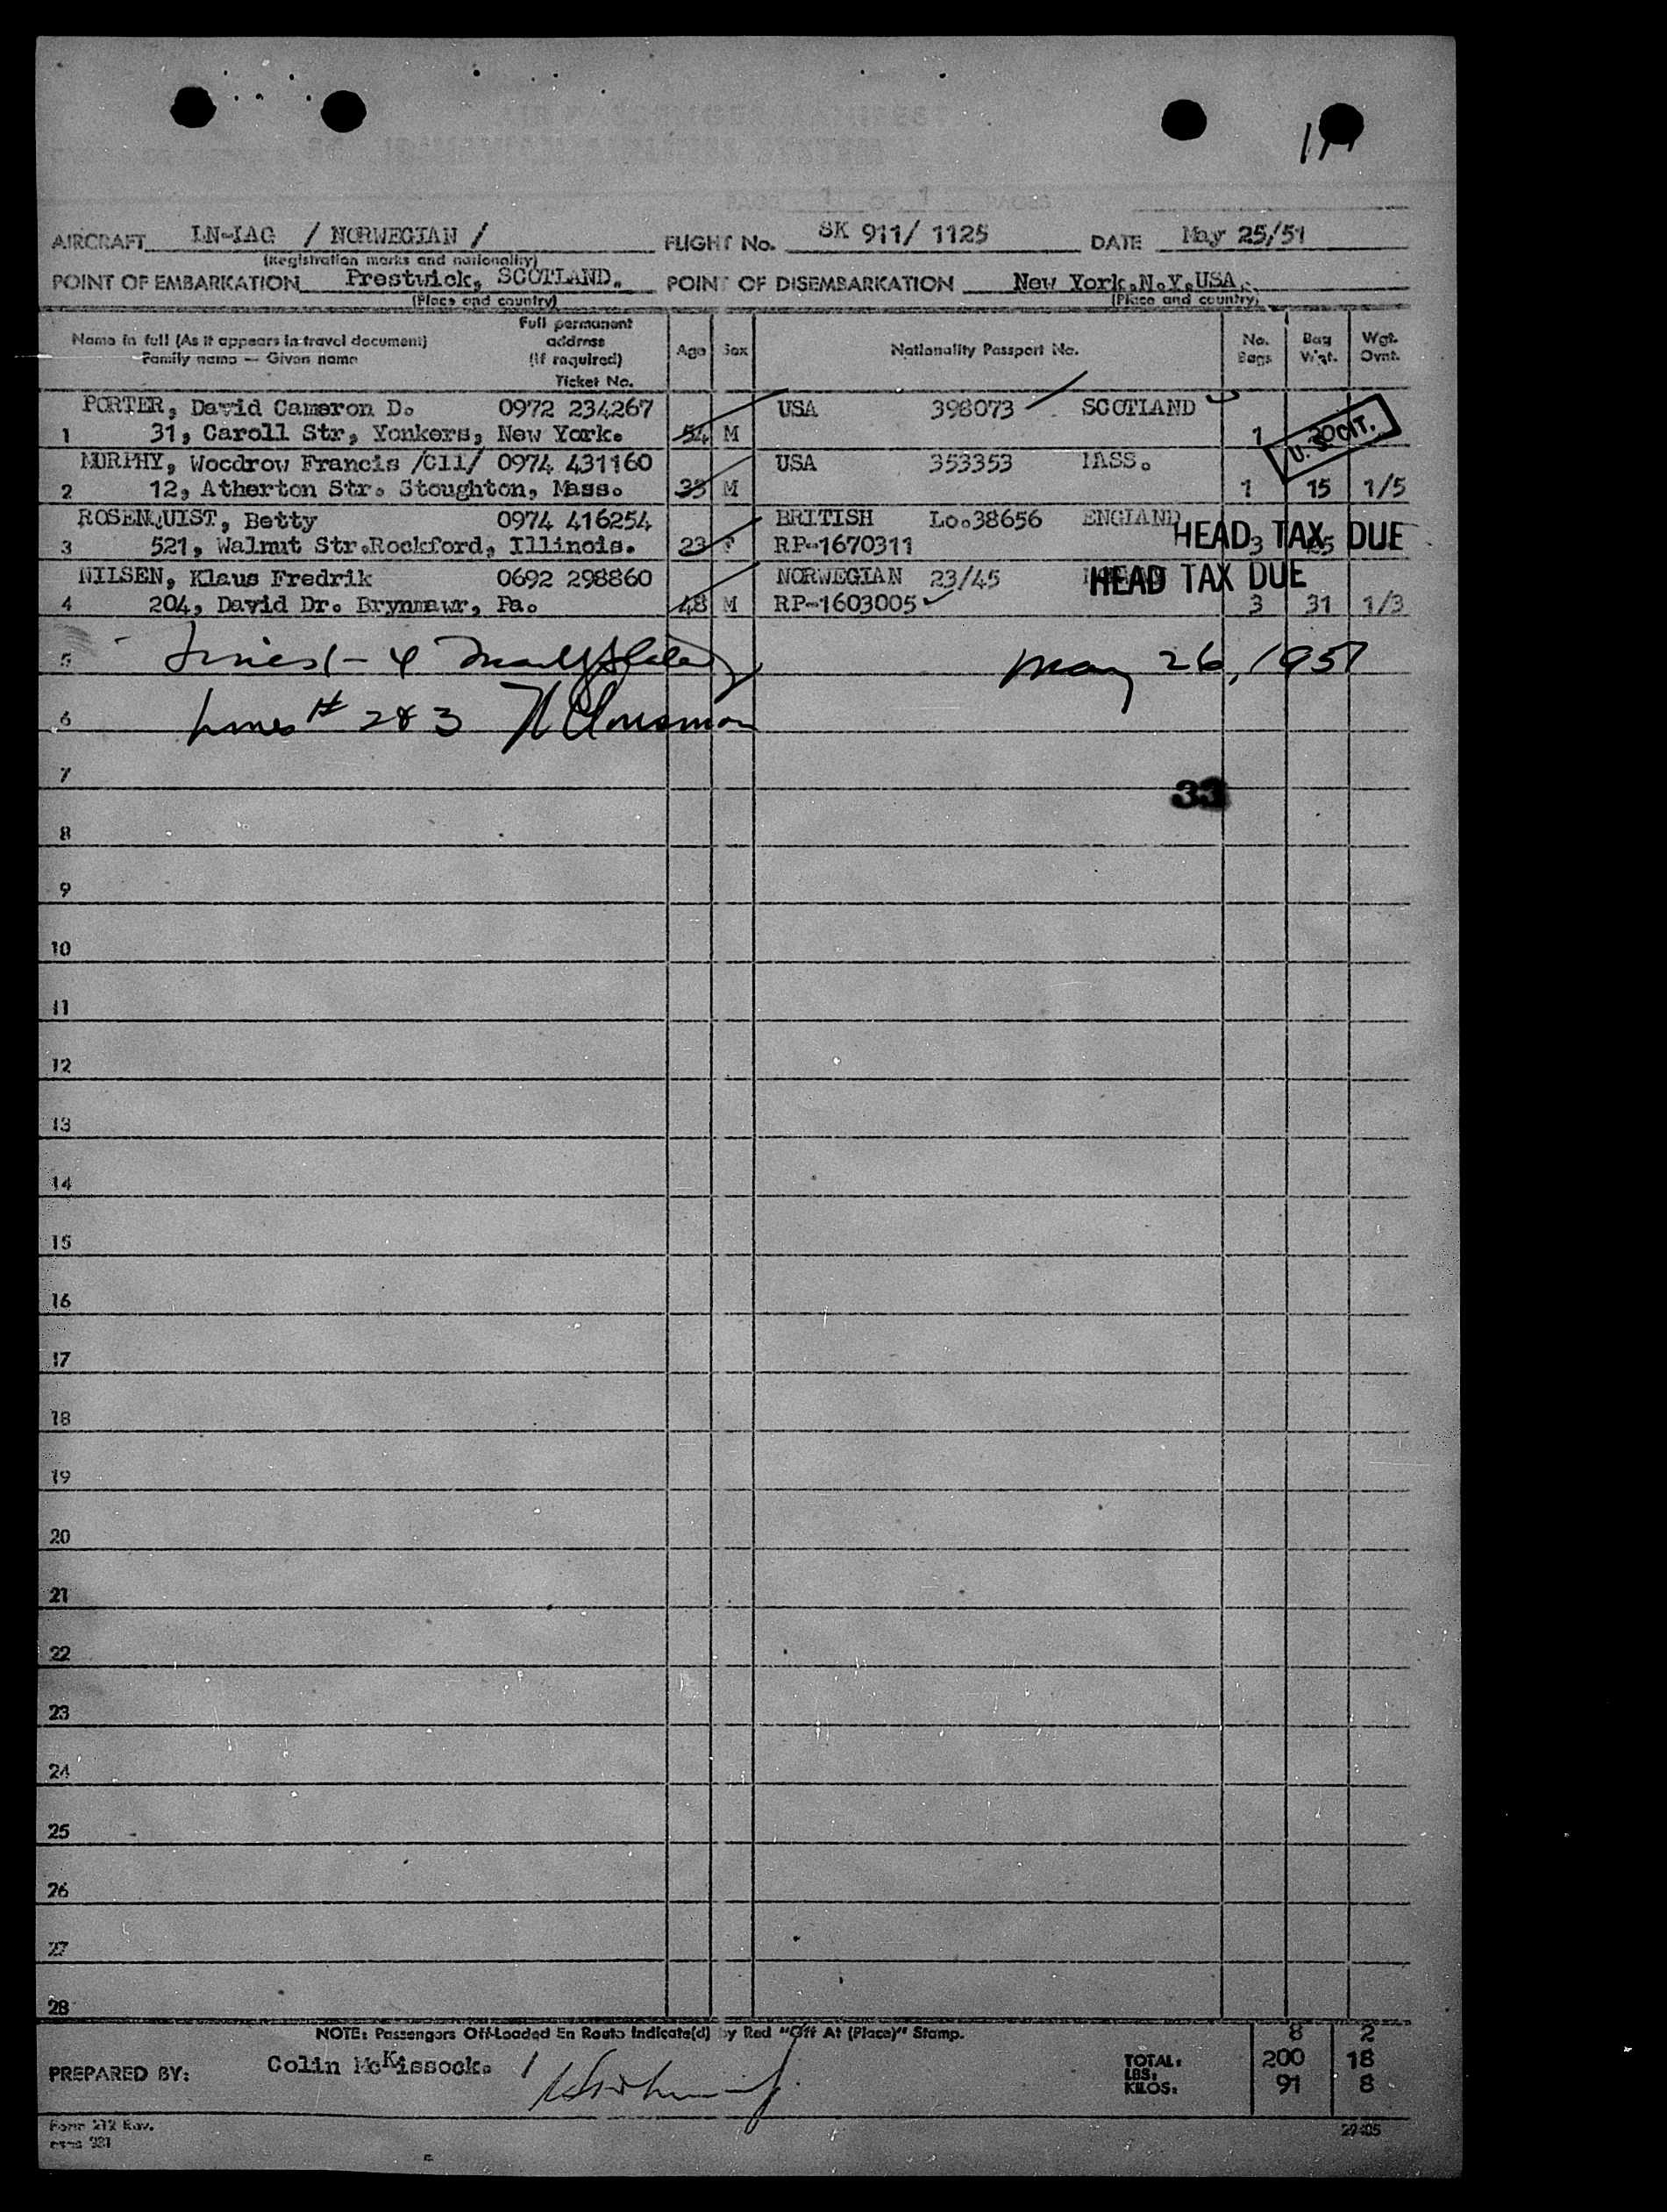 PAGE 1 OF 1 PAGES
AIRCRAFT LN-IAG / NORWEGIAN / FLIGHT No. SK 911/ 1125 DATE May 25/51
(Registration marks and nationality)
POINT OF EMBARKATION Prestwick, SCOTLAND. POINT OF DISEMBARKATION New York.N.Y.USA.
(Place and country) (Place and country)
Name in full (As it appears in travel document) Family name — Given name Full permanent address (If required) Ticket No. Age Sex Nationality Passport No. No. Bags Bag Wgt. Wgt. Ovnt.
PORTER, David Cameron D. 0972 234267 USA 398073 SCOTLAND
1 31, Caroll Str, Yonkers, New York. 54 M 1 20
U.S. CIT.
MURPHY, Woodrow Francis /C11/ 0974 431160 USA 353353 MASS.
2 12, Atherton Str. Stoughton, Mass. 35 M 1 15 1/5
ROSENQUIST, Betty 0974 416254 BRITISH Lo.38656 ENGLAND
3 521, Walnut Str.Rockford, Illinois. 23 F RP-1670311 3 25
HEAD TAX DUE
NILSEN, Klaus Fredrik 0692 298860 NORWEGIAN 23/45
HEAD TAX DUE
4 204, David Dr. Brynmawr, Pa. 48 M RP-1603005 3 31 1/3
5 Lines 1 - 4 May 26, 1951
6 Lines # 2 & 3
7
33
8
9
10
11
12
13
14
15
16
17
18
19
20
21
22
23
24
25
26
27
28
NOTE: Passengers Off-Loaded En Route Indicate(d) by Red "Off At (Place)" Stamp. 8 2
PREPARED BY: Colin McKissock. / TOTAL: LBS: 200 18
KILOS: 91 8
Form 212 Rev.